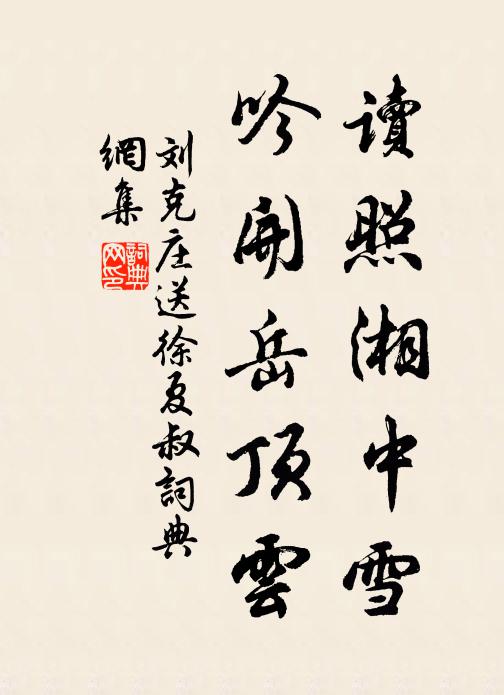 讀照湘中雪
吟開岳頂雲
刘克庄送徐夏叔詞典
網集
詞典网印